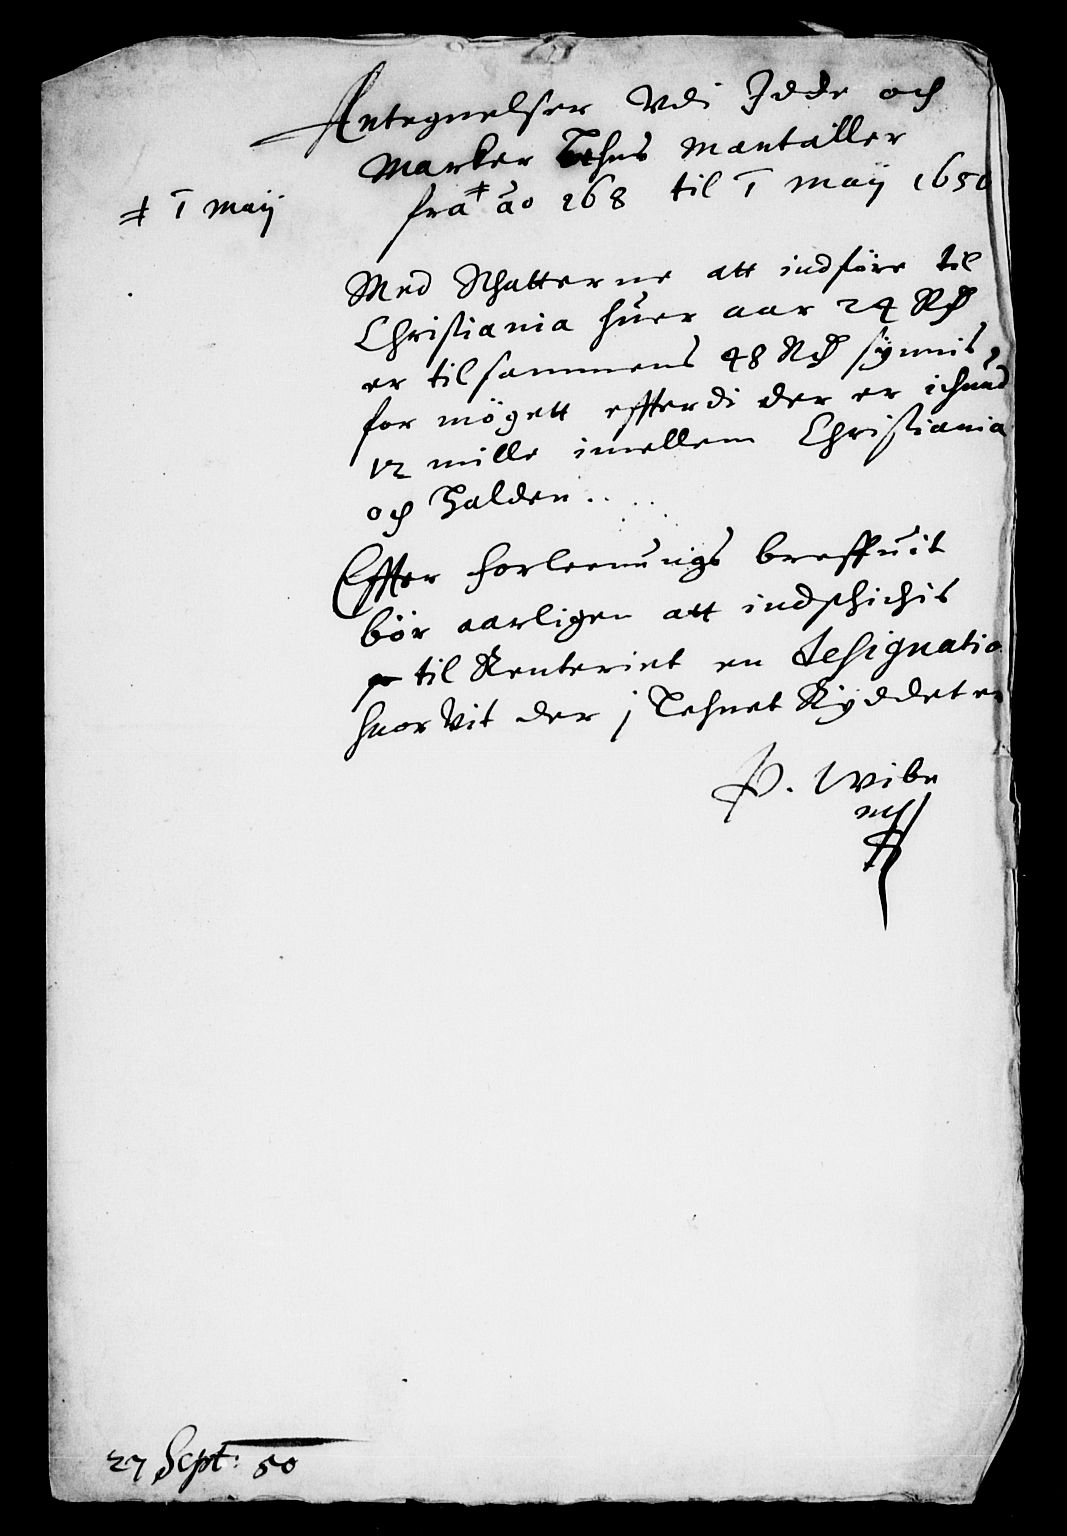 Antegnelser Vdi Idde och
Marker Lehns Mantaller
‡ 1 Maij
fra ‡ ao 168 til 1 Maij 1650
Med Schatterne att indföre til
Christiania huer aar 24 Rd
er tilsammens 48 Rd synnis
for mögett effterdi der er ichund
12 mille imellem Christiania
och Halden..
Effter Forleenungs breffuit
bör aarligen att indschichis
til Renteriet en Designatio
huor Vit der j Lehnet Ryddet er
P. Wibe
mp
27 Sept: 50